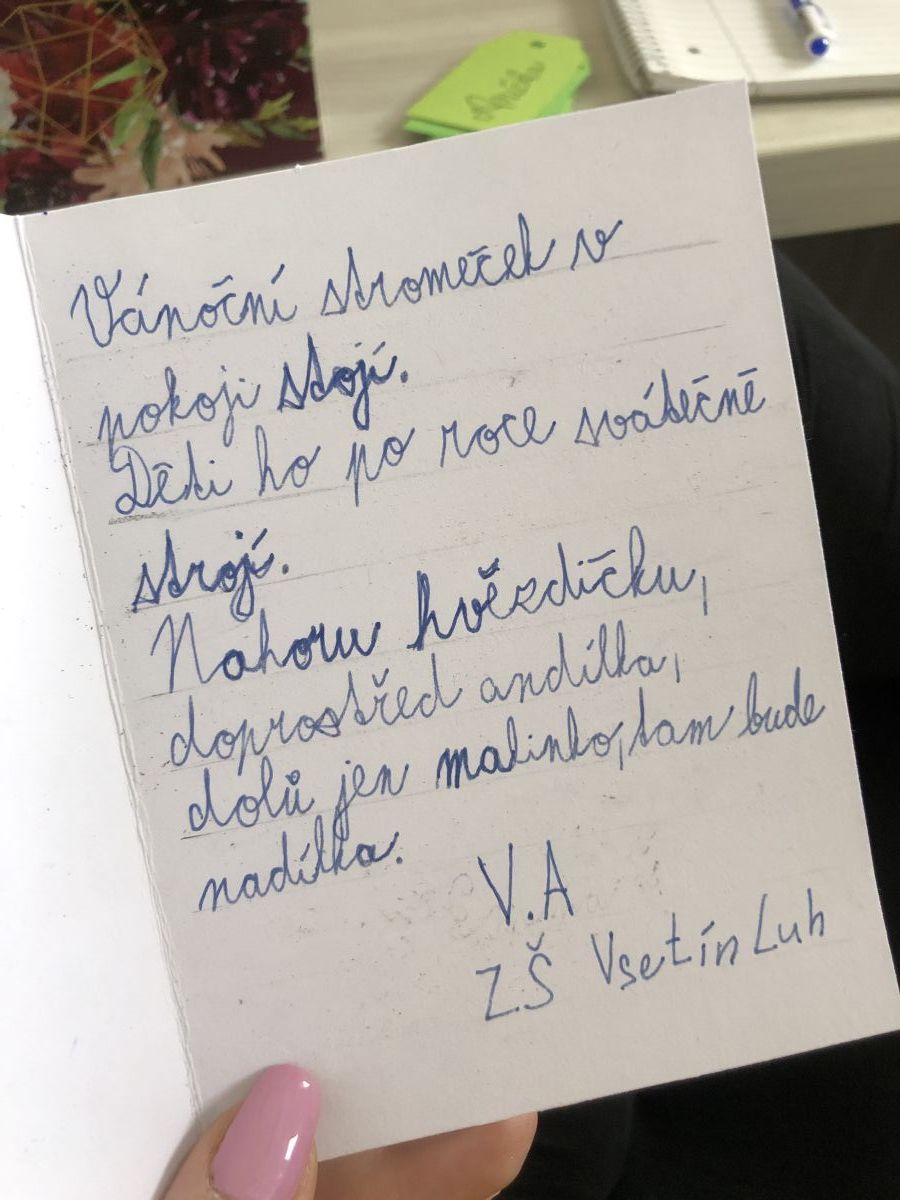 Vánoční stromeček v
pokoji stojí.
Děti ho po roce svátečně
strojí.
Nahoru hvězdičku,
doprostřed andílka,
dolů jen malinko, tam bude
nadílka.
V.A
ZŠ Vsetín Luh